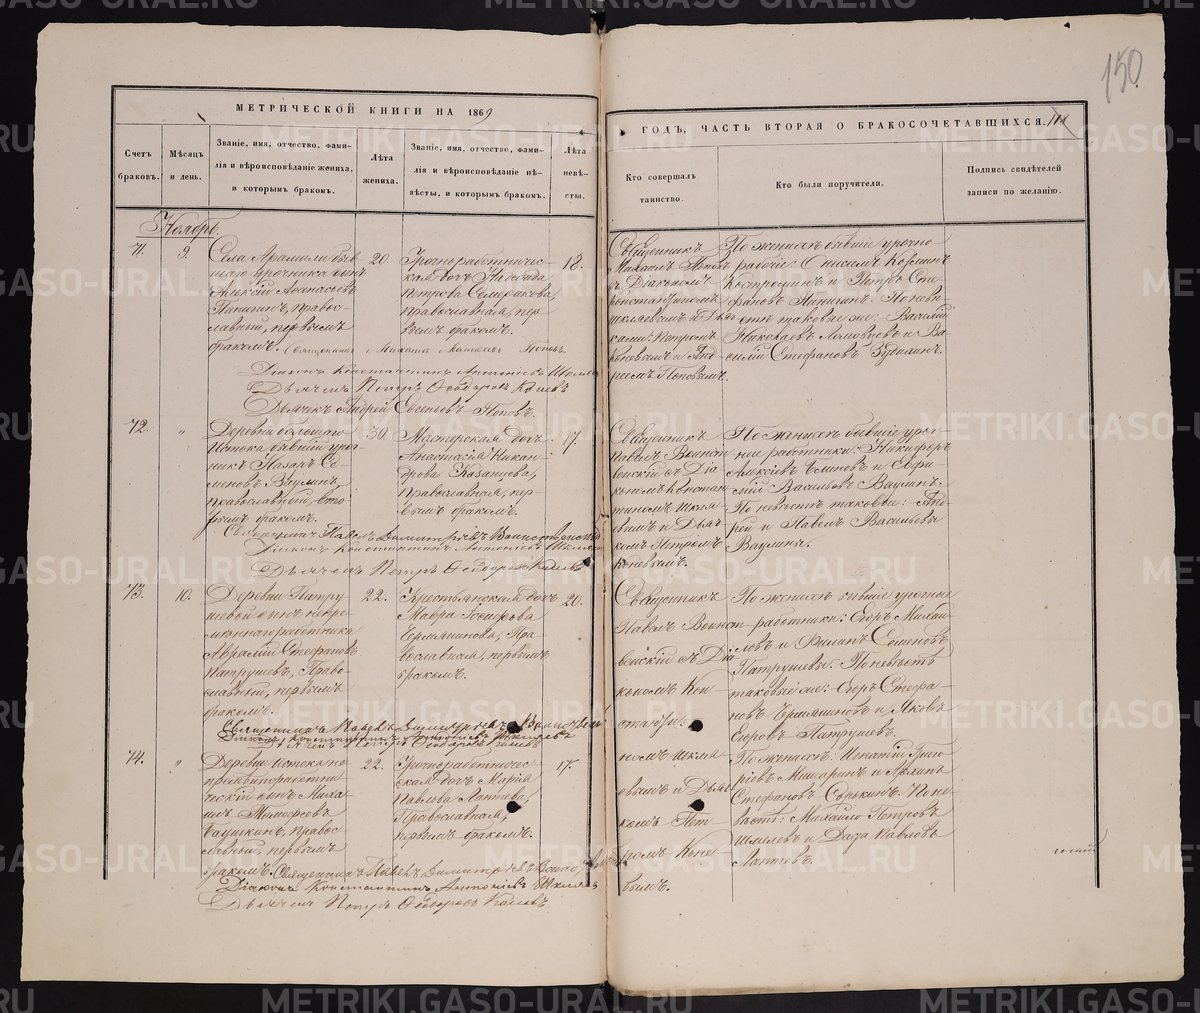 150
МЕТРИЧЕСКОЙ КНИГИ НА 1869
ГОДЪ, ЧАСТЬ ВТОРАЯ О БРАКОСОЧЕТАВШИХСЯ.
Счетъ браковъ.
Мѣсяцъ и день.
Званіе, имя, отчество, фами-
лія и вѣроисповѣданіе жениха,
и которымъ бракомъ.
Лѣта жениха.
Званіе, имя, отчество, фами-
лія и вѣроисповѣданіе не-
вѣсты, и которымъ бракомъ.
Лѣта невѣ-
сты.
Кто совершалъ
таинство.
Кто были поручители.
Подпись свидѣтелей
записи по желанію.
Ноябрь.
71.
9.
Села Арамили быв-
шаго урочника сынъ
Алексій Аѳанасьевъ
православ-
ный, первымъ
бракомъ.
20.
Урочноработничес-
кая дочь
Петрова
православная, пер-
вымъ бракомъ.
18.
Священникъ
Михаилъ Поповъ
съ Діакономъ
Константиномъ
Шкляевымъ и Дьяч-
ками: Петромъ
Коневымъ и Анд-
реемъ Поповымъ.
По женихѣ бывшіе урочно
рабочіе:
и Петръ Сте-
фановъ По невѣ-
стѣ таковые же: Василій
Николаевъ и Ва-
силій Стефановъ
Священникъ Михаилъ Поповъ
Діаконъ Константинъ Антоніевъ Шкляевъ
Дьячекъ Петръ Ѳеодоровъ Коневъ
Дьячекъ Андрей Евсеньевъ Поповъ.
72.
"
Деревни
Истока бывшій уроч-
никъ Назаръ Се-
меновъ Ваулинъ,
православный, вто-
рымъ бракомъ.
30
Мастерская дочь
Анастасія Никан-
дрова Казанцева,
Православная, пер-
вымъ бракомъ.
17.
Священникъ
Павелъ Воинст-
венскій съ Діа-
кономъ Констан-
тиномъ Шкля-
евымъ и Дьяч-
комъ Петромъ
Коневымъ.
По женихѣ бывшіе уроч-
ные работники: Никифоръ
Алексѣевъ и Ефи-
мій Васильевъ Ваулинъ.
По невѣстѣ таковые: Анд-
рей и Павелъ Васильевы
Ваулины.
Священникъ Павелъ Димитріевъ Воинственскій
Діаконъ Константинъ Антоніевъ Шкляевъ
Дьячекъ Петръ Ѳеодоровъ Коневъ
73.
10.
Деревни Патру-
шевой сынъ
работника
Авраамій Стефановъ
Патрушевъ, Право-
славный, первымъ
бракомъ.
22.
Крестьянская дочь
Мавра Іосифова
Пра-
вославная, первымъ
бракомъ.
20.
Священникъ
Павелъ Воинст-
венскій съ Діа-
кономъ Кон-
станти-
номъ Шкля-
евымъ и Дьяч-
комъ Пет-
ромъ Коне-
вымъ.
По женихѣ бывшіе урочные
работники: Егоръ Михай-
ловъ и Семеновъ
Патрушевы. По невѣстѣ
таковые же: Егоръ Стефа-
новъ и Яковъ
Егоровъ Патрушевъ.
Священникъ Павелъ Димитріевъ Воинственскій
Діаконъ Константинъ Антоніевъ Шкляевъ
Дьячекъ Петръ Ѳеодоровъ Коневъ
74.
"
Деревни Истока не-
сынъ Миха-
илъ Тимоѳеевъ
правос-
лавный, первымъ
бракомъ.
22.
Урочноработничес-
кая дочь Марія
Павлова Лаптева,
Православная,
первымъ бракомъ.
17.
По женихѣ: Игнатій Григо-
ріевъ и
Стефановъ Сорокинъ. По не-
вѣстѣ: Михайло Петровъ
Шмелевъ и Павловъ
Лаптевъ.
Священникъ Павелъ Димитріевъ
Діаконъ Константинъ Антоніевъ Шкляевъ
Дьячекъ Петръ Ѳеодоровъ Коневъ
METRIKI.GASO-URAL.RU